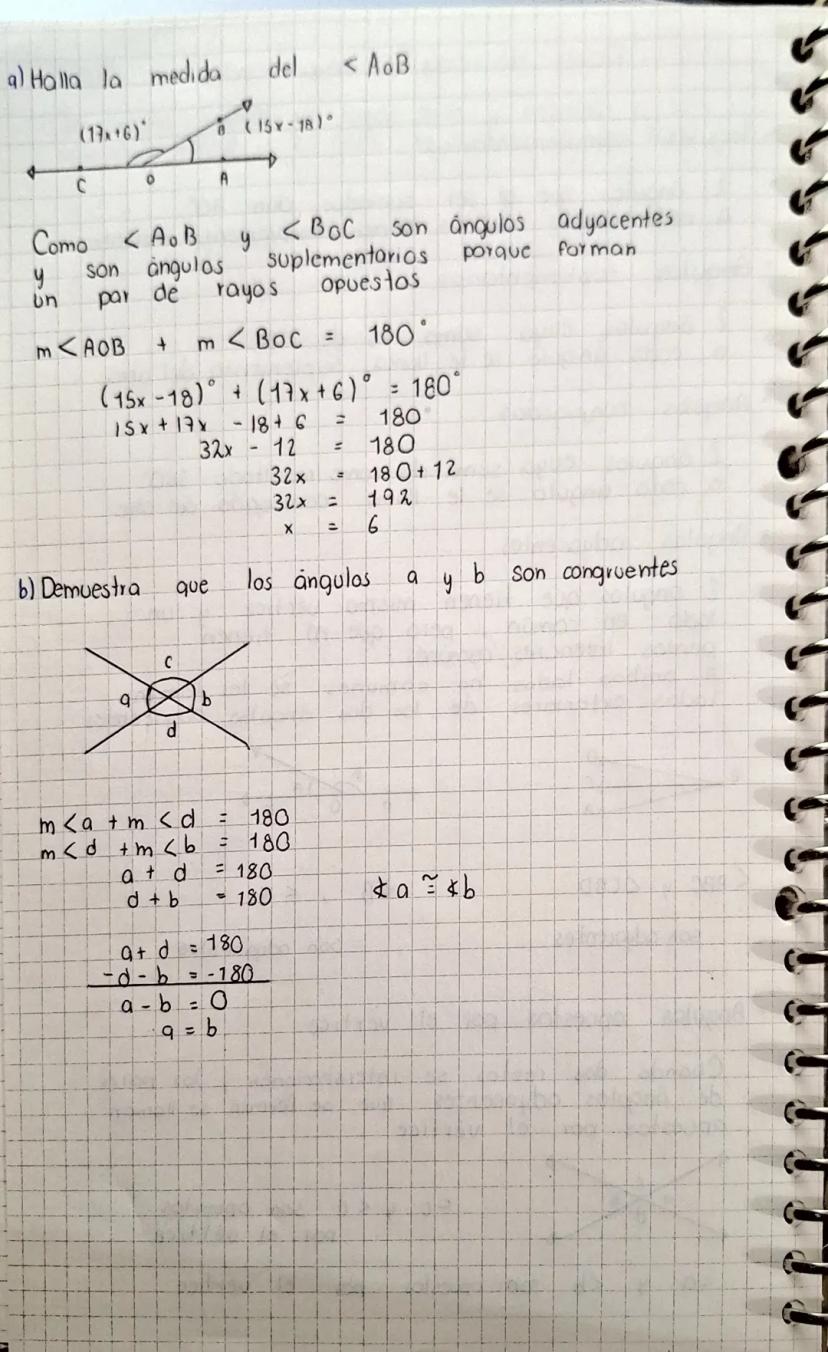 a) Halla la medida del <AoB
(17x+6)° B (15x-18)°
C O A
Como <AoB y <BoC son ángulos adyacentes
y son ángulos suplementarios porque forman
un par de rayos opuestos
m<AOB + m<BOC = 180°
(15x-18)° + (17x+6)° = 180°
15x+17x -18+6 = 180°
32x - 12 = 180
32x = 180+12
32x = 192
x = 6
b) Demuestra que los ángulos a y b son congruentes
c
a b
d
m<a + m<d = 180
m<d + m<b = 180
a + d = 180
d + b = 180 ∢a ≅ ∢b
a + d = 180
-d - b = -180
a - b = 0
a = b